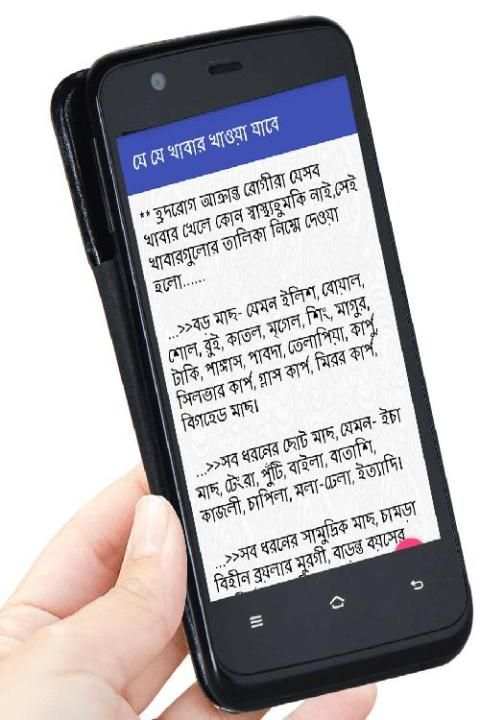 যে যে খাবার খাওয়া যাবে
** হৃদরোগ আক্রান্ত রোগীরা যেসব
খাবার খেলে কোন স্বাস্থ্যহুমকি নাই,সেই
খাবারগুলোর তালিকা নিম্নে দেওয়া
হলো......
...>>বড় মাছ- যেমন ইলিশ, বোয়াল,
শোল, রুই, কাতল, মৃগেল, শিং, মাগুর,
টাকি, পাঙ্গাস, পাবদা, তেলাপিয়া, কার্পু,
সিলভার কার্প, গ্লাস কার্প, মিরর কার্প,
বিগহেড মাছ।
...>>সব ধরনের ছোট মাছ, যেমন- ইচা
মাছ, টেংরা, পুঁটি, বাইলা, বাতাশি,
কাজলী, চাপিলা, মলা-ঢেলা, ইত্যাদি।
...>>সব ধরনের সামুদ্রিক মাছ, চামড়া
বিহীন ব্রয়লার মুরগী, বাড়ন্ত বয়সের